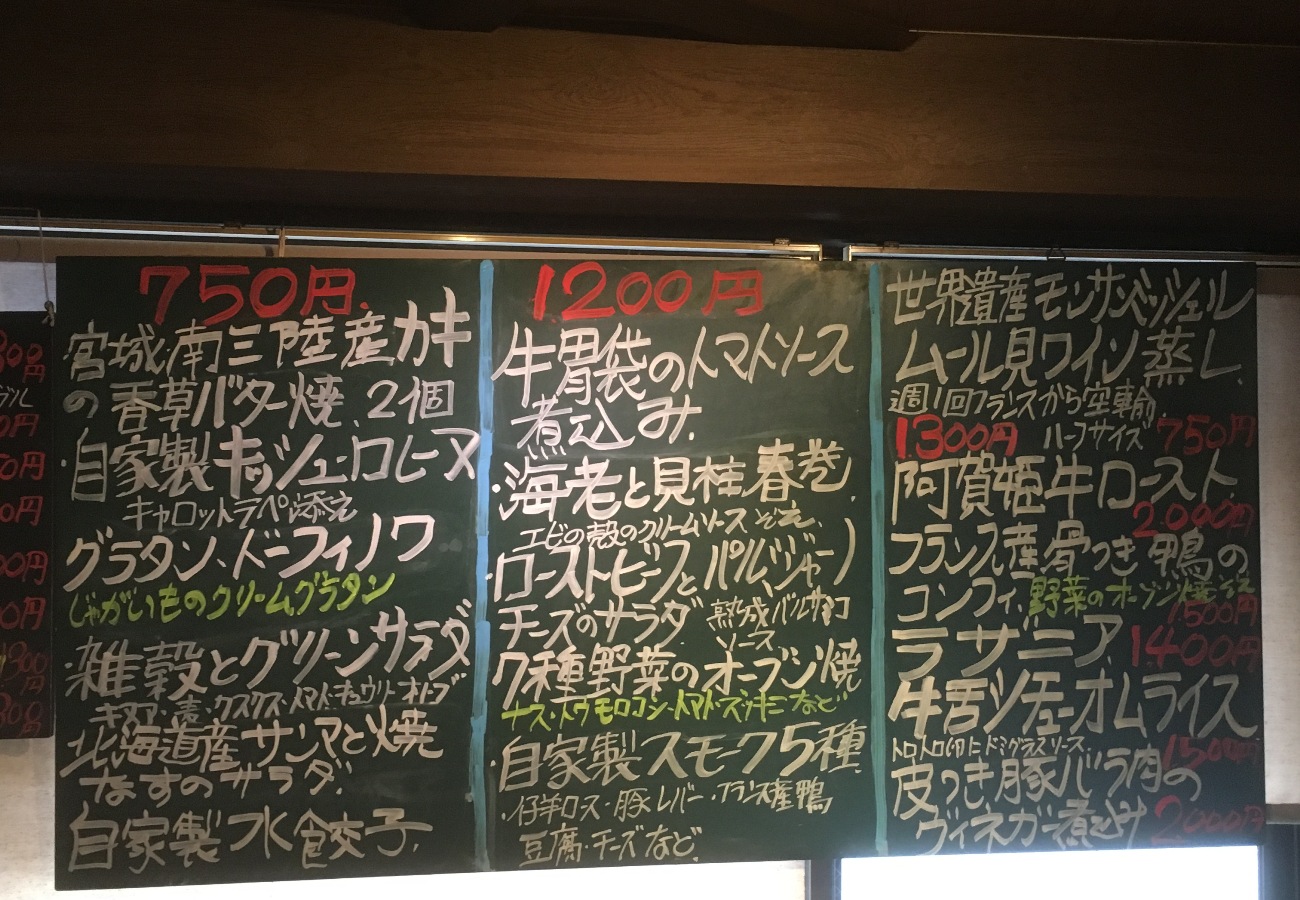 750円
宮城.南三陸産カキ
の香草バター焼.2個
・自家製キッシュ・ロレーヌ
キャロットラペ添え
グラタン・ドーフィノワ
じゃがいものクリームグラタン
・雑穀とグリーンサラダ
キヌア・麦・クスクス・トマト・キュウリ・オリーブ
・北海道産サンマと焼
なすのサラダ.
自家製水餃子.
1200円
・牛胃袋のトマトソース
煮込み.
・海老と貝柱.春巻.
エビの殻のクリームソースぞえ.
・ローストビーフとパルミジャーノ
チーズのサラダ 熟成バルサミコ
ソース
・7種野菜のオーブン焼
ナス・トウモロコシ・トマト・ズッキーニなど
・自家製スモーク5種.
仔羊ロース・豚レバー・フランス産鴨
豆腐・チーズなど.
世界遺産モンサンミッシェル
ムール貝ワイン蒸し.
週1回フランスから空輸.
1300円 ハーフサイズ 750円
阿賀姫牛ロースト.
2000円
フランス産骨つき鴨の
コンフィ.野菜のオーブン焼ぞえ
1500円
ラザニア.1400円
牛舌シチューオムライス
デミグラスソース.1500円
皮つき豚バラ肉の
ヴィネガー煮込み 2000円
300円
0円
50円
00円
00円
00円
300円